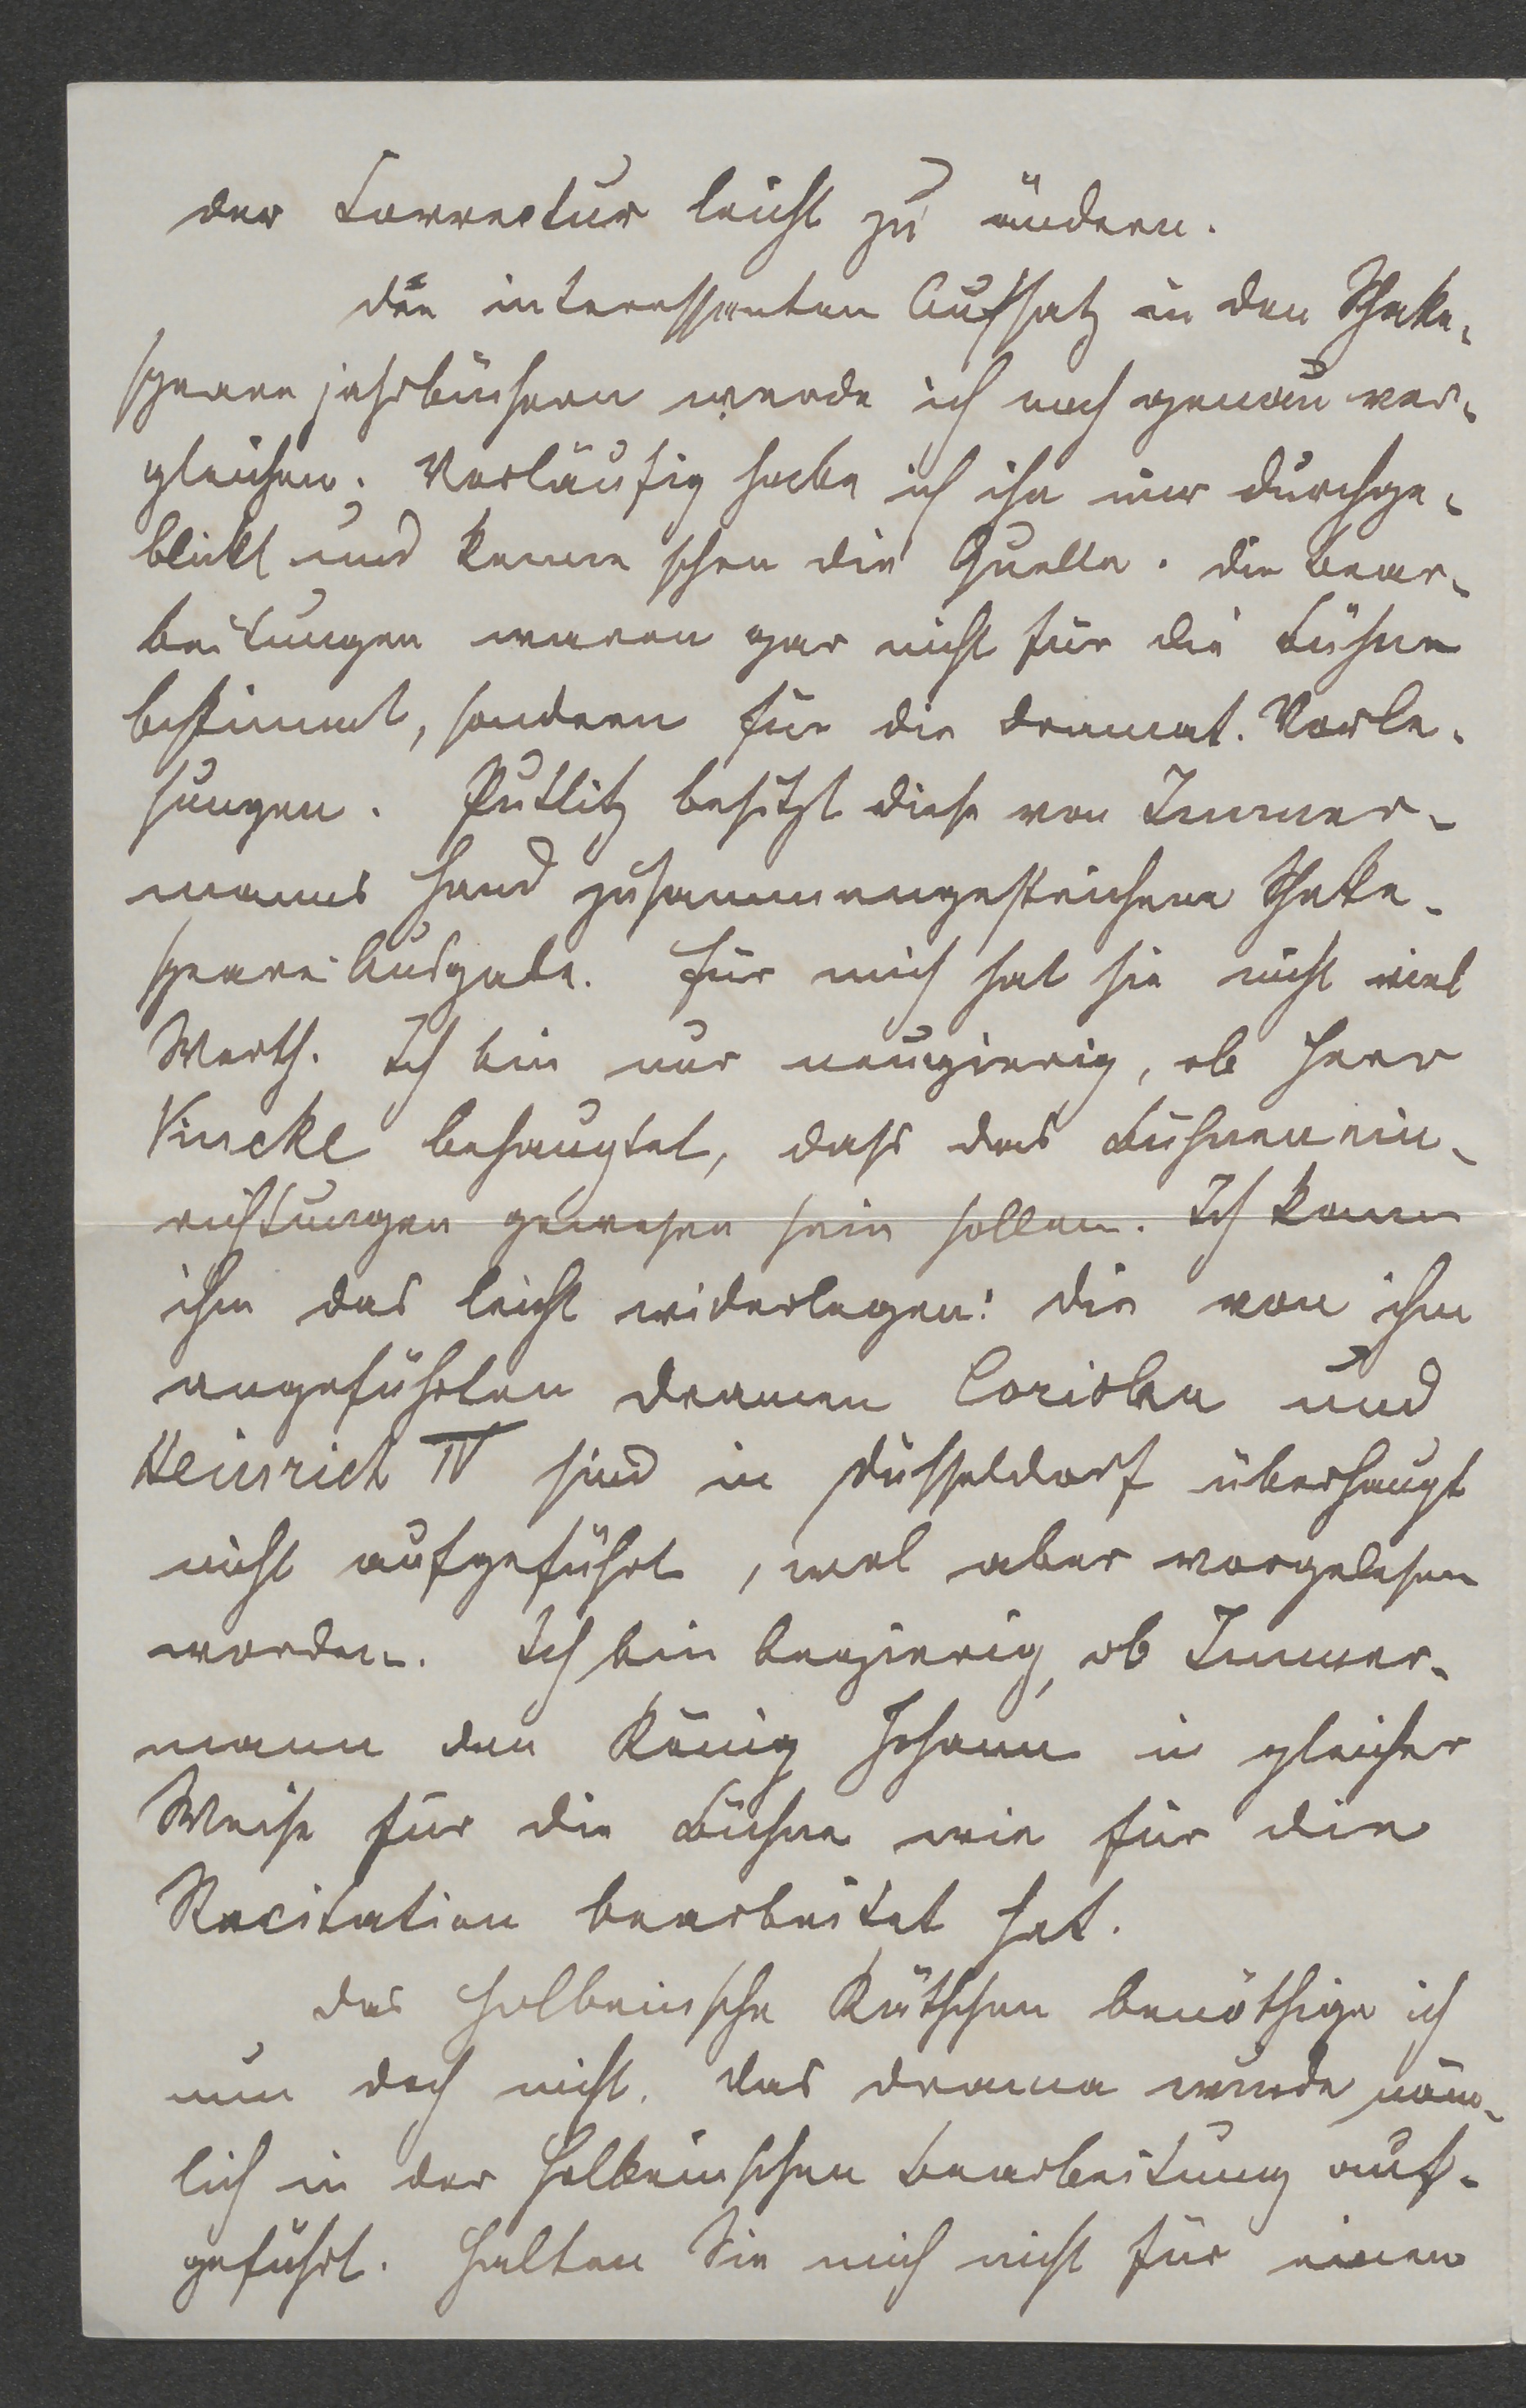 der Correctur leicht zu ändern.
Den interessanten Aufsatz in den Shake-
spearejahrbüchern werde ich noch genau ver-
gleichen. Vorläufig habe ich ihn nur durchge-
blickt und kenne schon die Quelle. Die Bear-
beitungen waren gar nicht für die Bühne
bestimmt, sondern für die dramat. Vorle-
sungen. Putlitz besitzt diese von Immer-
manns Hand zusammengestrichene Shake-
speare-Ausgabe. Für mich hat sie nicht viel
Werth. Ich bin nur neugierig, ob Herr
Vincke behauptet, dass das Bühnenein-
richtungen gewesen sein sollen. Ich kann
ihm das leicht widerlegen: die von ihm
angeführten Dramen Coriolan und
Heinrich IV sind in Düsseldorf überhaupt
nicht aufgeführt, wol aber vorgelesen
worden. Ich bin begierig, ob Immer-
mann den König Johann in gleicher
Weise für die Bühne wie für die
Recitation bearbeitet hat.
Das Holbeinsche Käthchen benöthige ich
nun doch nicht. Das Drama wurde näm-
lich in der Holbeinschen Bearbeitung auf-
geführt. Halten Sie mich nicht für einen